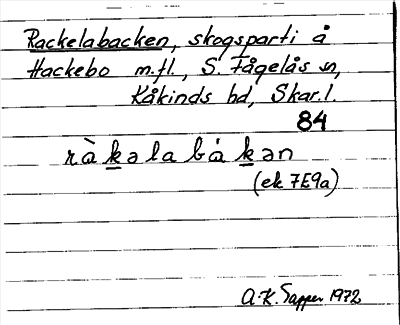 Rackelabacken, skogsparti å
Hackebo m.fl., S. Fågelås sn,
Kåkinds hd, Skar.l.
84
ràkəla bákən
(ek 7E9a)
A.K. Sapper 1972